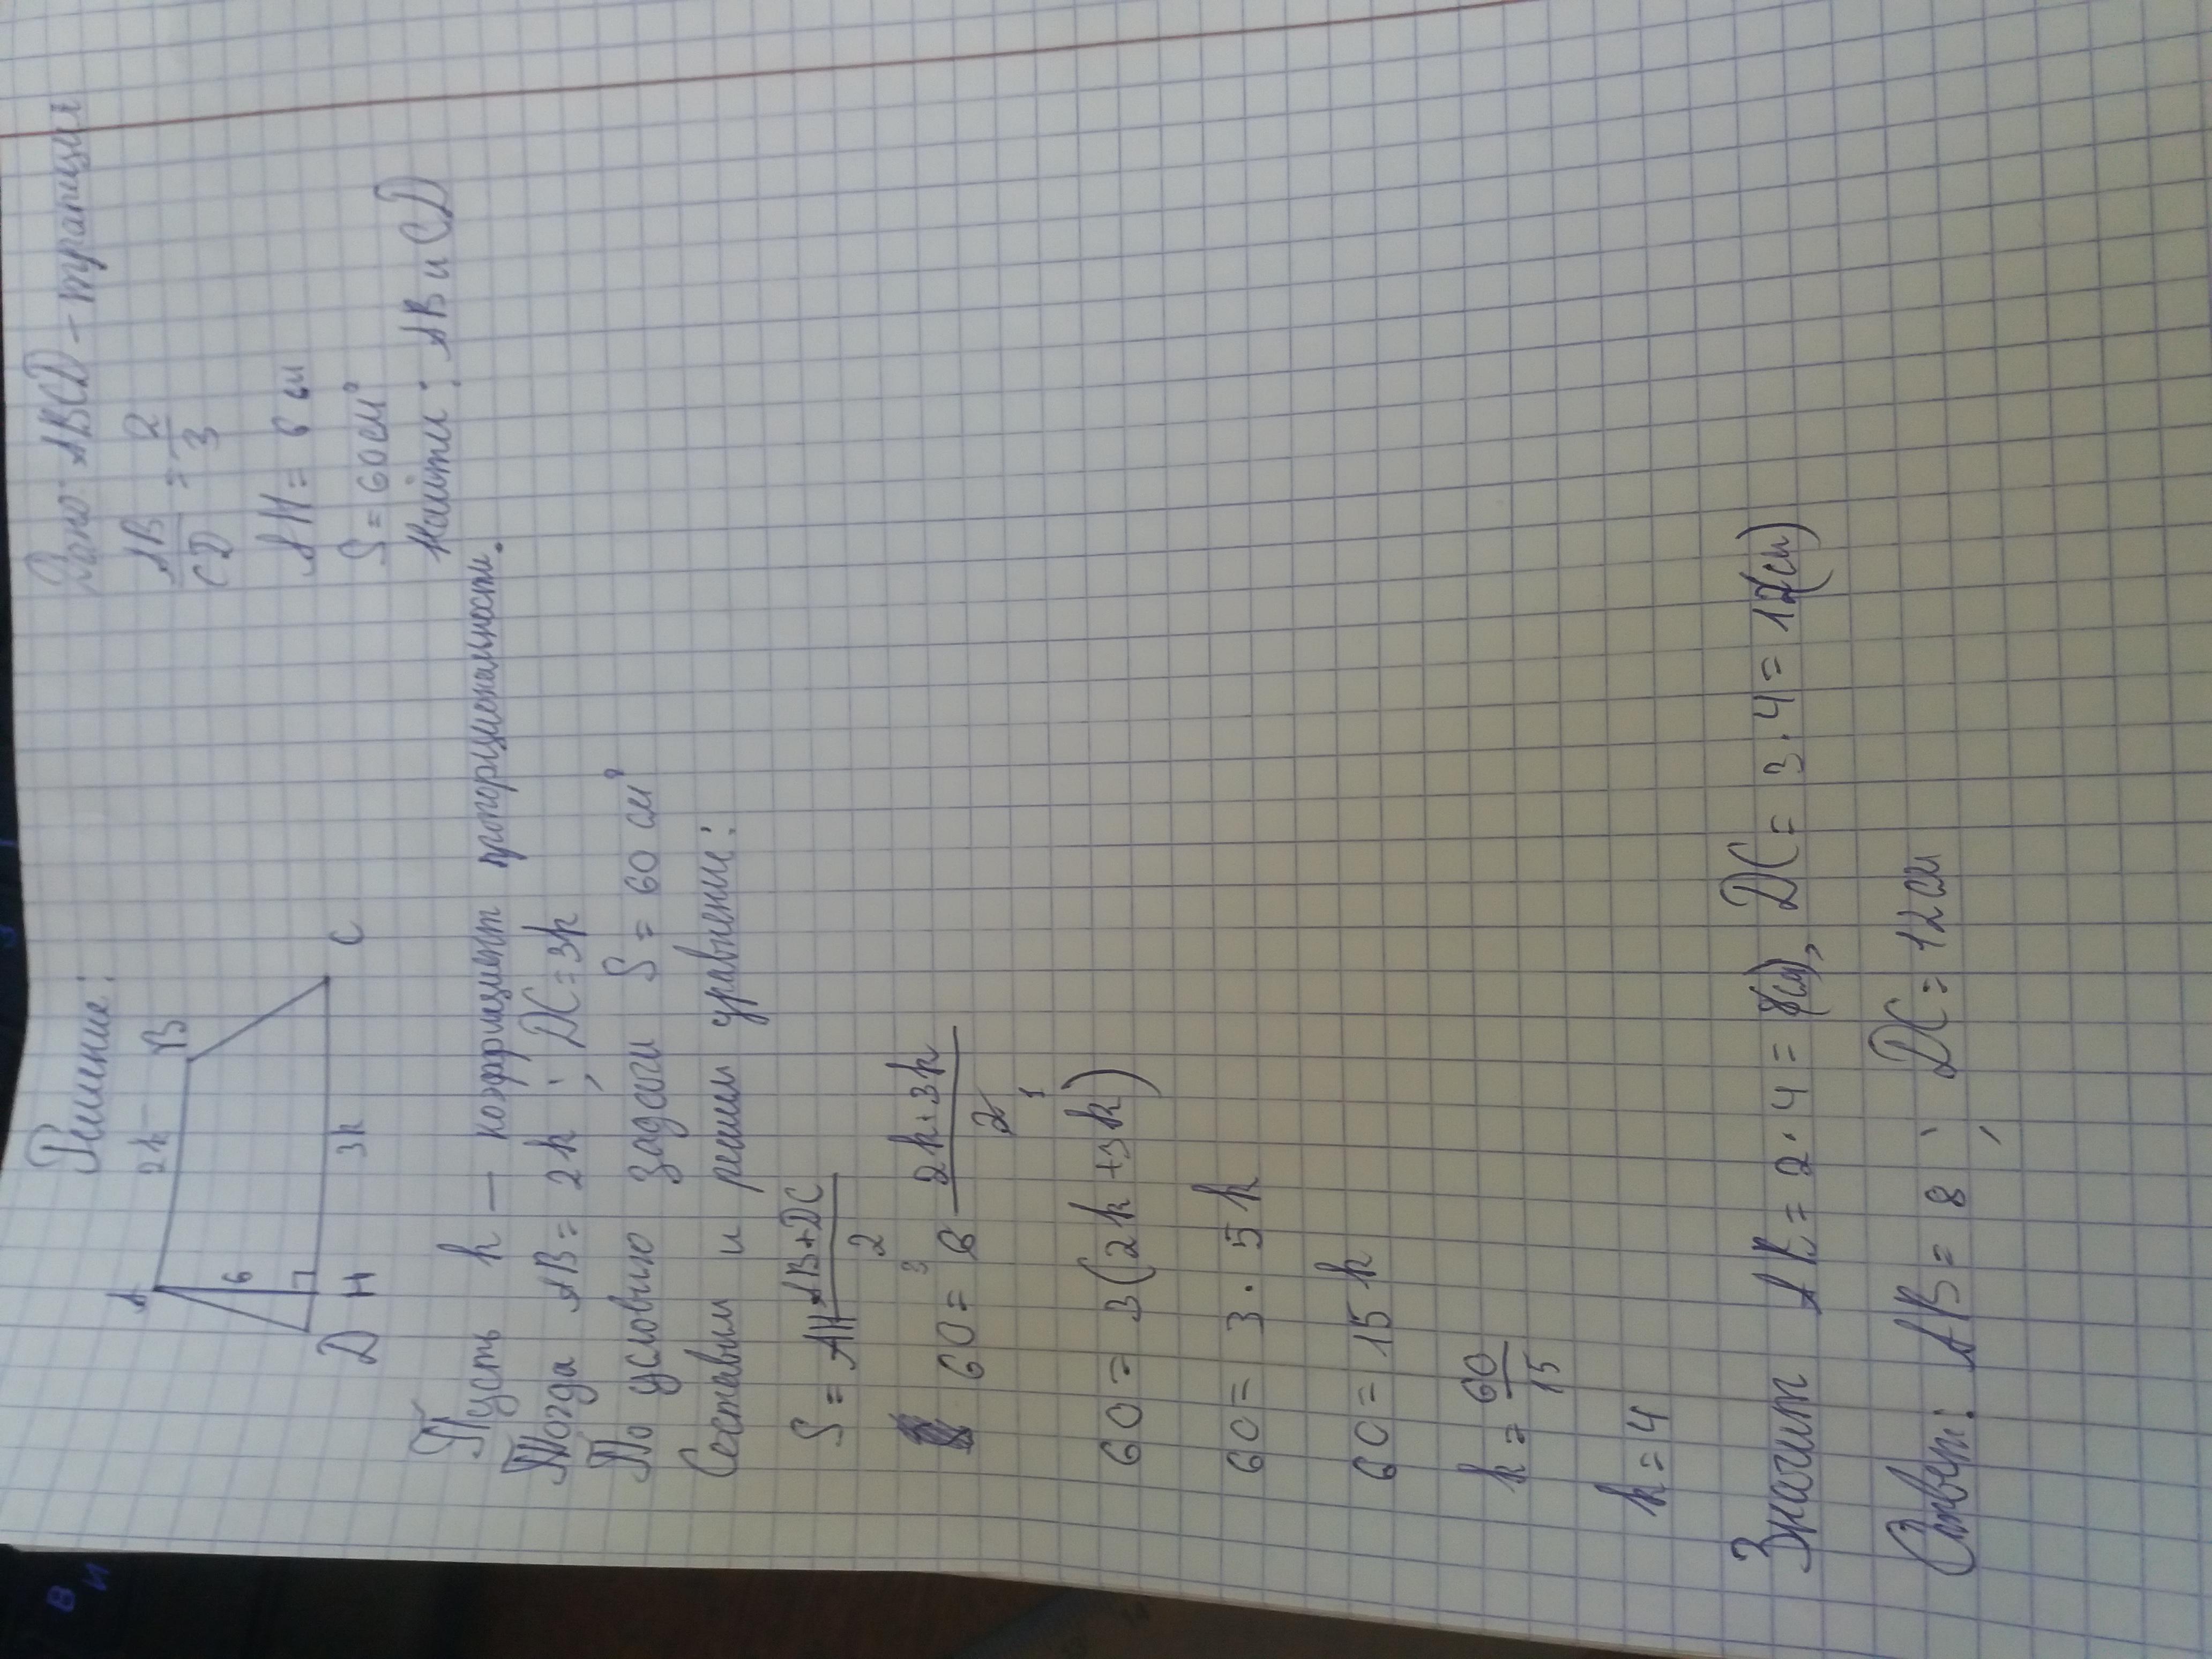 Решение:
Дано: ABCD - трапеция
AB/CD = 2/3
AH = 6 см
S = 60 см²
Найти: AB и CD
A 2k B
6
D H 3k C
Пусть k — коэффициент пропорциональности.
Тогда AB = 2k ; DC = 3k
По условию задачи S = 60 см²
Составим и решим уравнение:
S = AH (AB+DC)/2
60 = 6 3 (2k+3k)/2 1
60 = 3(2k+3k)
60 = 3·5k
60 = 15k
k = 60/15
k = 4
Значит AB = 2·4 = 8(см), DC = 3·4 = 12(см)
Ответ: AB = 8 ; DC = 12 см